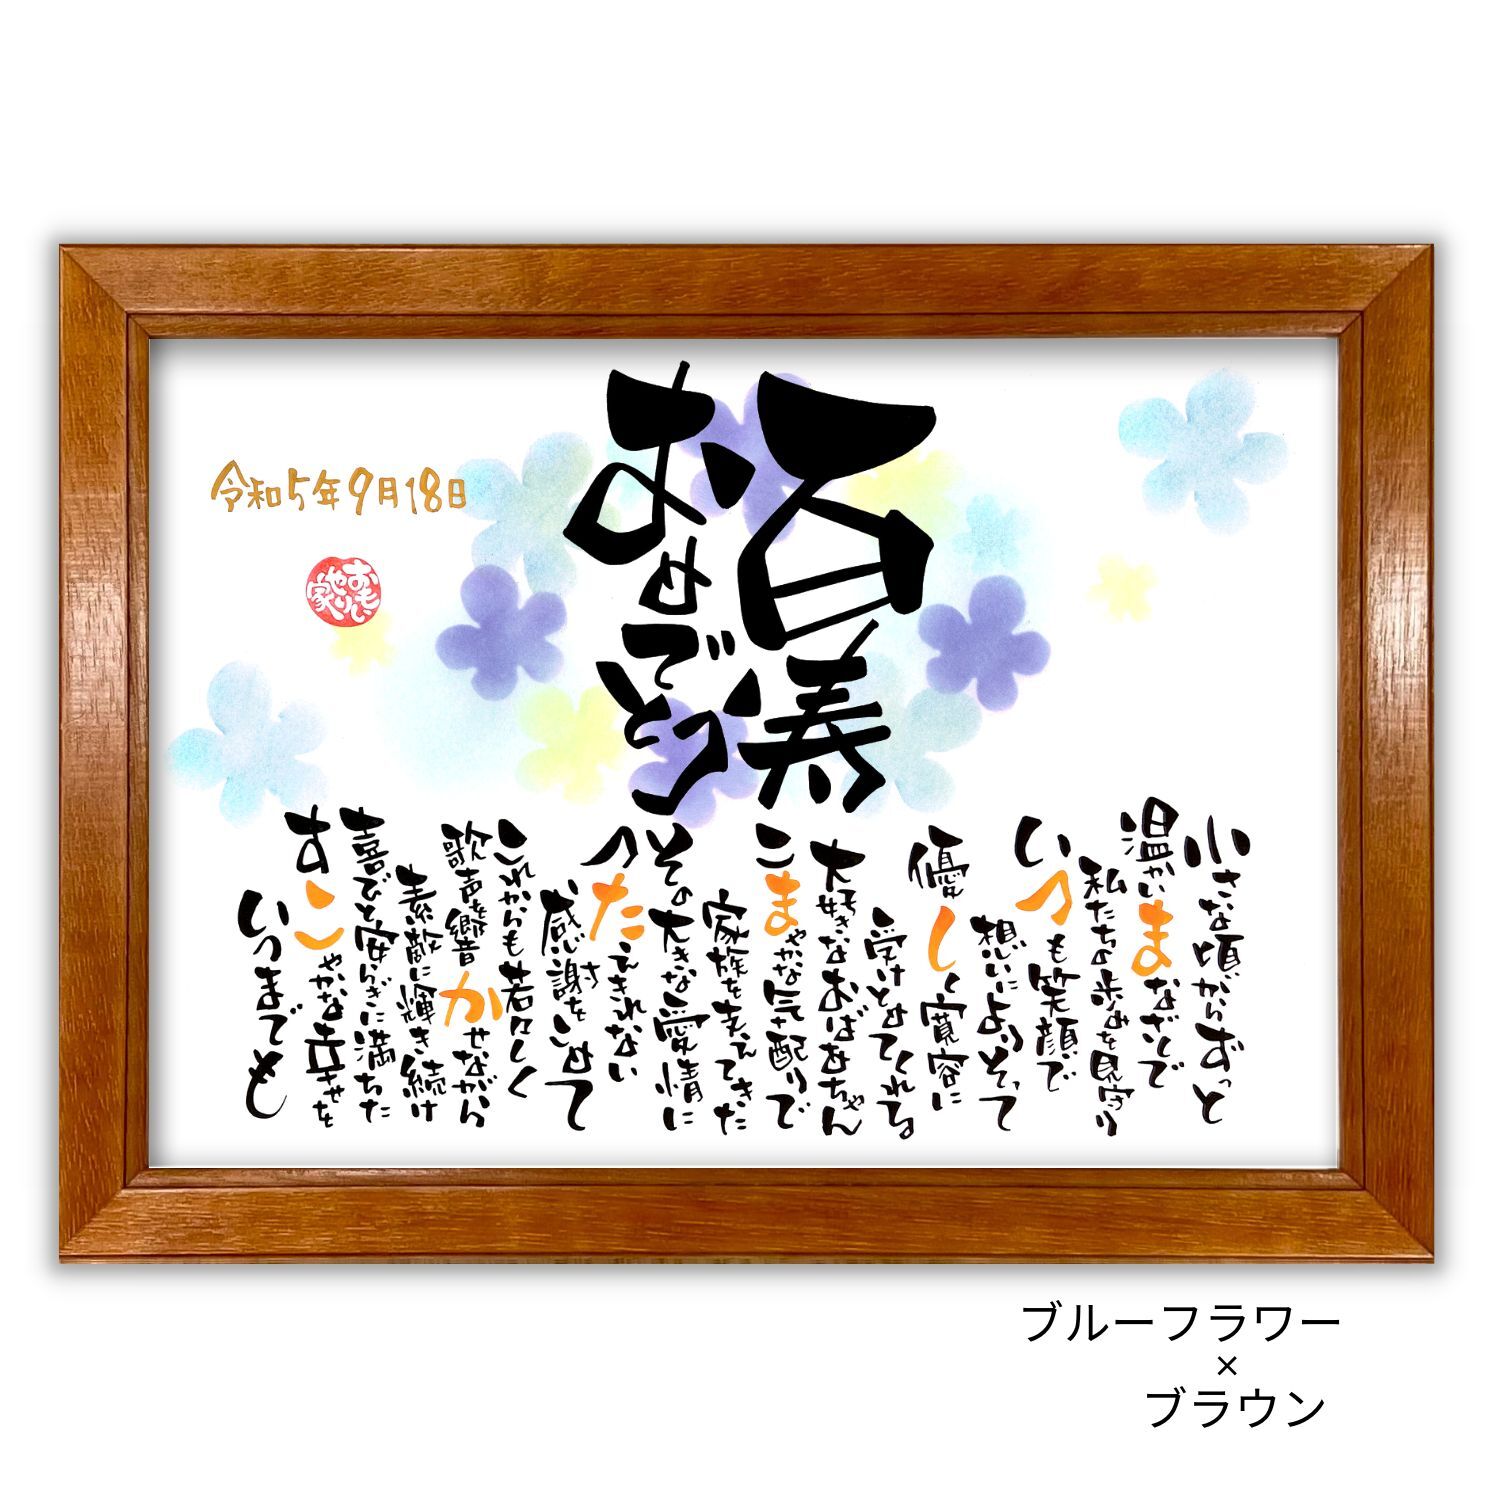 百寿
おめでとう
小さな頃からずっと
温かいまなざしで
私たちの歩みを見守り
いつも笑顔で
想いによりそって
優しく寛容に
受けとめてくれる
大好きなおばあちゃん
こまやかな気配りで
家族を支えてきた
その大きな愛情に
つたえきれない
感謝をこめて
これからも若々しく
歌声を響かせながら
素敵に輝き続け
喜びと安らぎに満ちた
すこやかな幸せを
いつまでも
令和5年9月18日
おもいやり家
ブルーフラワー
×
ブラウン